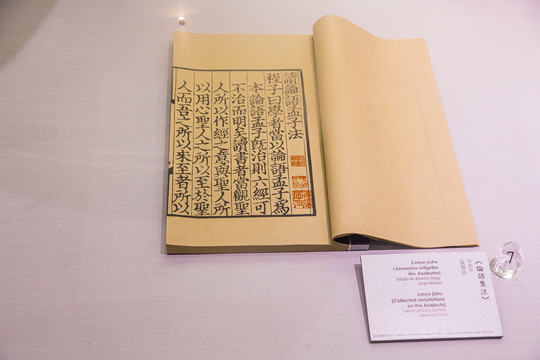 讀論語孟子法
程子曰學者當以論語孟子爲
本論語孟子既治則六經可
不治而明矣讀書者當觀聖
人所以作經之意與聖人所
以用心聖人之所以至於聖
人而吾之所以未至者所以
Lunyu jizhu
(Anotações coligidas
dos Analectos)
Lunyu jizhu
(Collected annotations
on the Analects)
《論語集注》
7